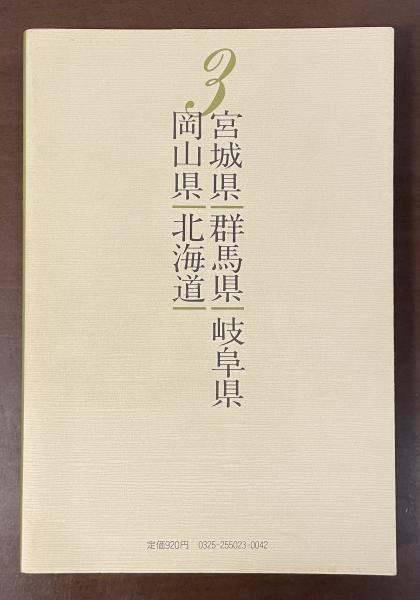 3
宮城県|群馬県|岐阜県
岡山県|北海道|
定価920円 0325-255023-0042